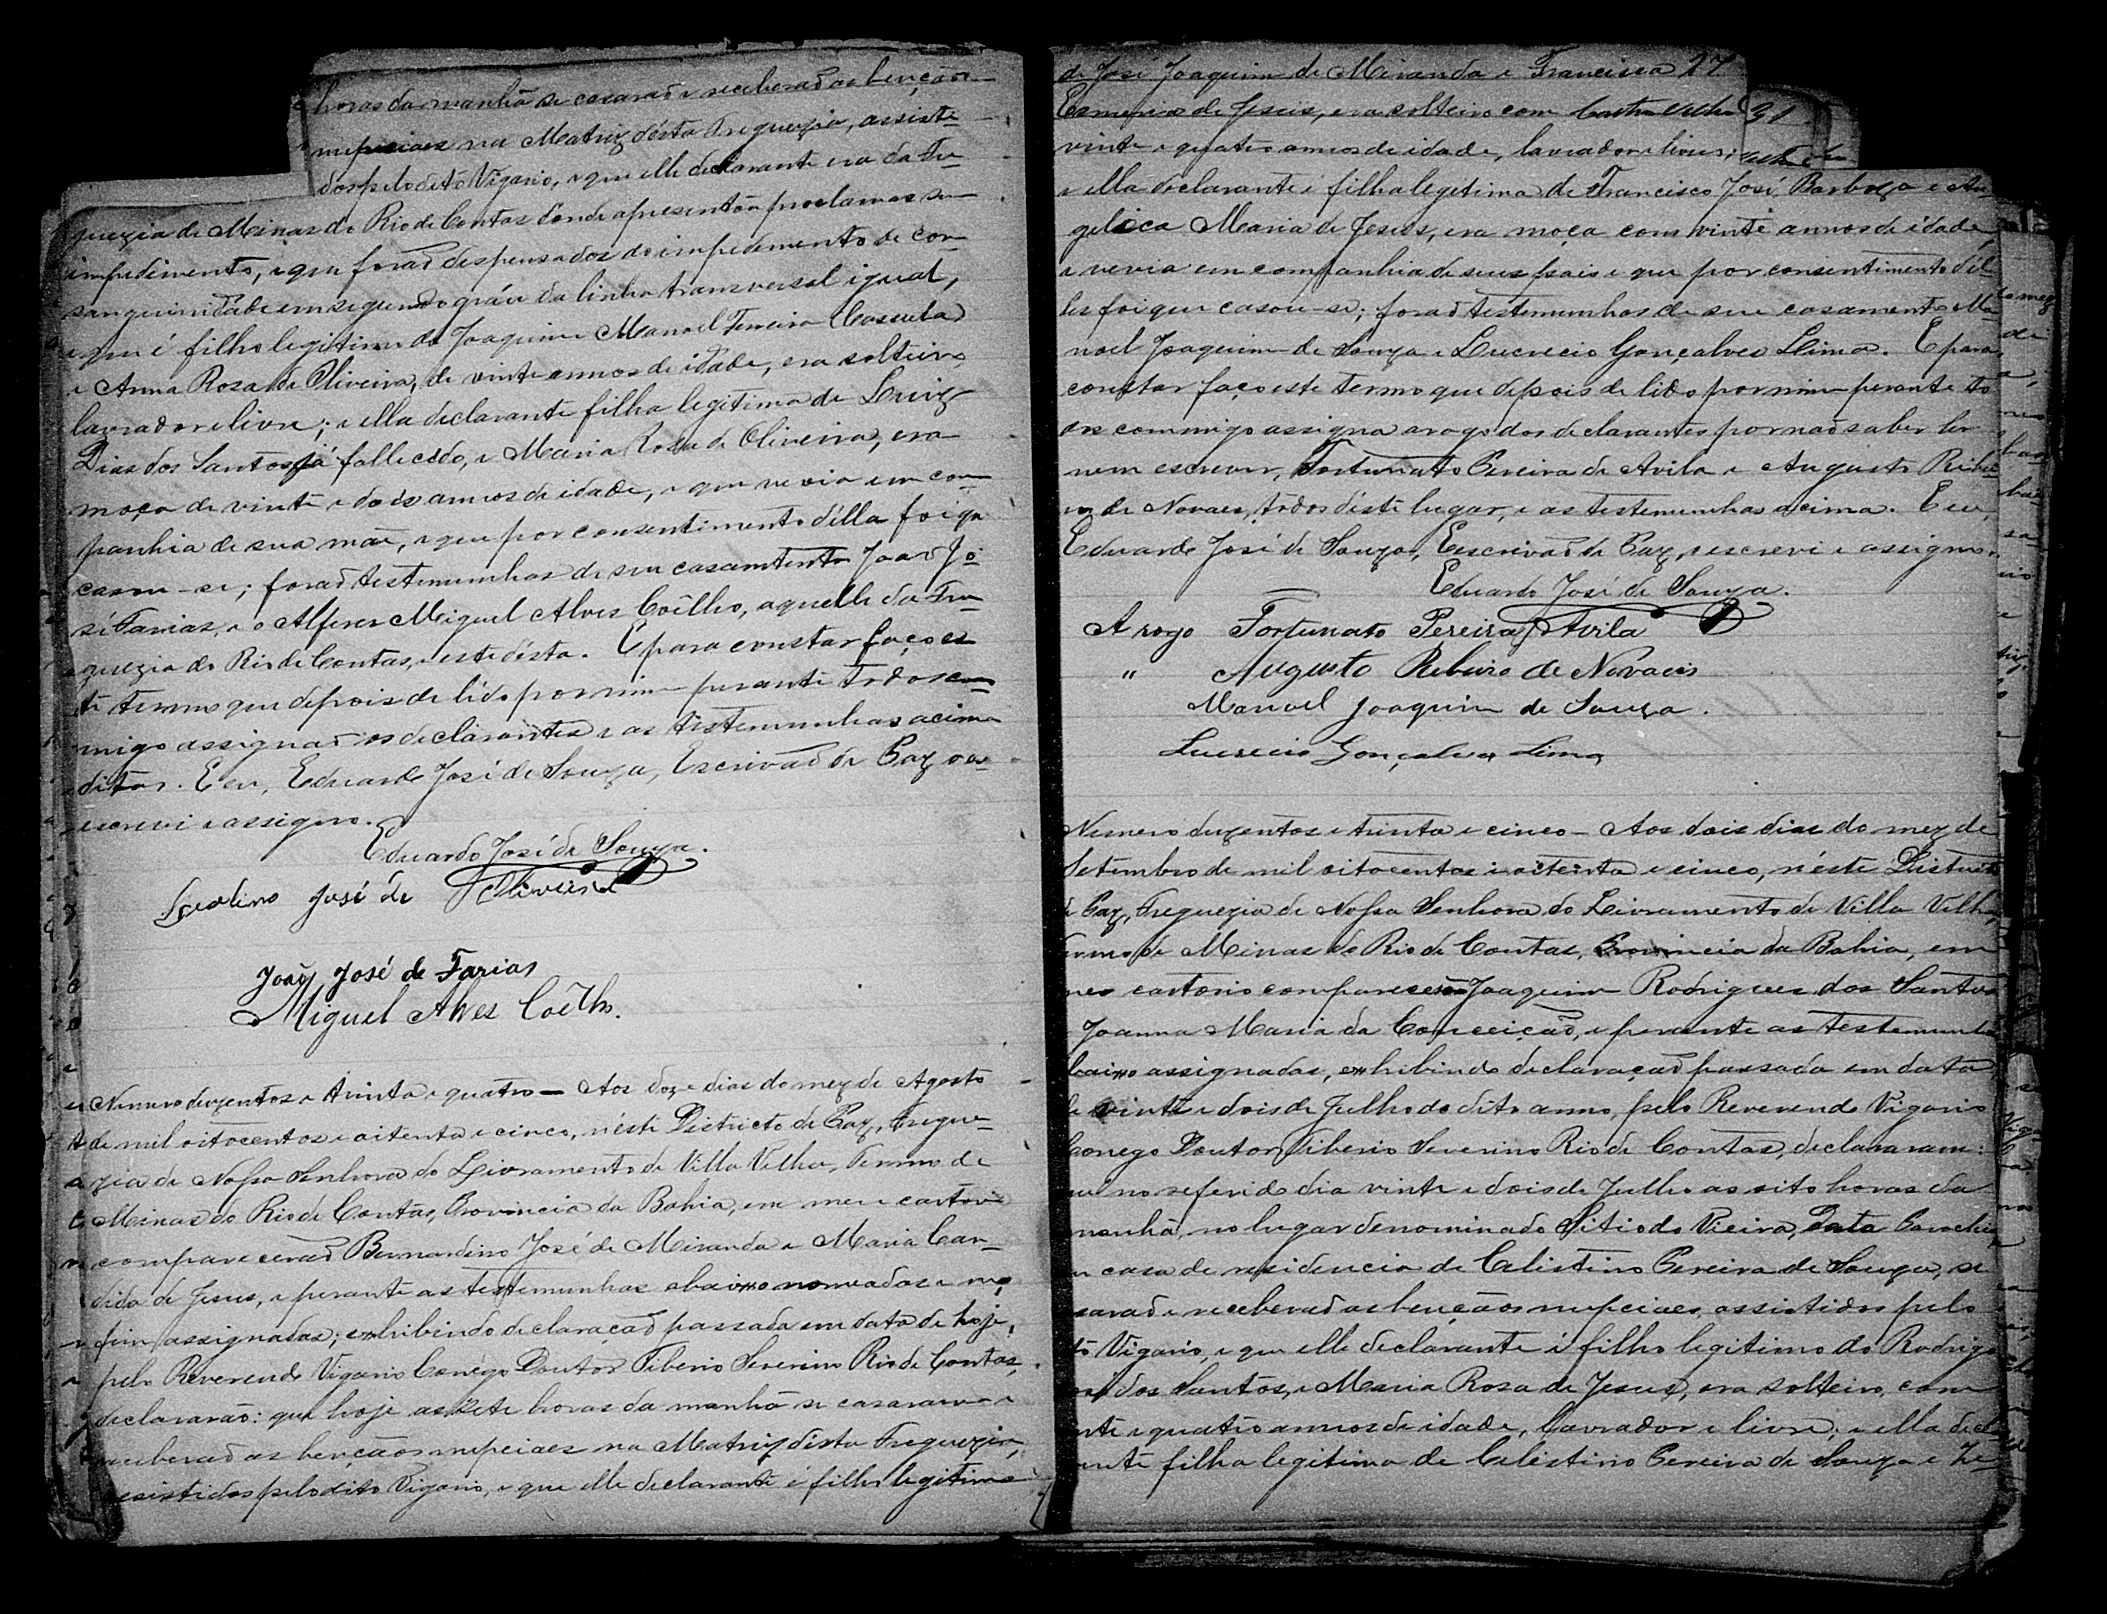 horas da manhã se casarão e receberaõ as bençãos
nupciaes na Matriz désta Freguezia, assisti-
dos pelo dito Vigario, e que elle declarante era da Fre
guezia de Minas do Rio de Contas donde apresentou proclamas sem
impedimento, e que foraõ despensados do impedimento de con
sanguinidade em segundo gráu da linha transversal igual,
e que é filho legitimo de Joaquim Manoel Ferreira
e Anna Rosa de Oliveira, de vinte annos de idade, era solteiro,
lavrador e livre; e ella declarante filha legitima de Luiz
Dias dos Santos já fallecido, e Maria Rosa de Oliveira, era
moça de vinte e dois annos de idade, e que vevia em com
panhia de sua mãe, e que por consentimento d'ella foi que
casou-se; foraõ testemunhas de seu casamtento Joaõ Jo-
sé Farias, e o Alferes Miguel Alves Coêlho, aquelle da Fre-
guezia do Rio de Contas, e este désta. E para constar faço es
te termo que depois de lido por mim perante todos com-
migo assignaõ os declarantes e as testemunhas acima
ditas. E eu, Eduardo José de Souza, Escrivaõ de Paz o es-
escrevi e assigno.
Eduardo José de Souza.
José de Oliveira
Joaõ José de Farias
Miguel Alves Coêlho.
Numero duzentos e trinta e quatro — Aos doze dias do mez de Agosto
de mil oitocentos e oitenta e cinco, n'éste Districto de Paz, Fregue-
zia de Nossa Senhora do Livramento de Villa Velha, Termo de
Minas do Rio de Contas, Provincia da Bahia, em meu cartorio
compareceraõ Bernardino José de Miranda e Maria Can-
dida de Jesus, e perante as testemunhas abaixo nomeadas e no
fim assignadas; exhibindo declaracaõ passada em data de hoje,
pelo Reverendo Vigario Conêgo Doutor Tiberio Severino Rio de Contas,
declararão: que hoje as sete horas da manhã se casaram e
receberaõ as bençãos nupciaes na Matriz désta Freguezia,
assistidos pelo dito Vigario, e que elle declarante é filho legitimo
de José Joaquim de Miranda e Francisca 27
Esmeria de Jesus, era solteiro com 31
vinte e quatro annos de idade, lavrador e livre;
e ella declarante e filha legitima de Francisco José Barboza e An
gelica Maria de Jesus, era moça com vinte annos de idade,
e vevia em companhia de seus pais e que por consentimento d'el
les foi que casou-se; foraõ testemunhas de seu casamento Ma-
noel Joaquim de Souza e Lucrecio Gonçalves Lima. E para
constar faço este termo que depois de lido por mim perante to
dos commigo assigna a rogo dos declarantes por naõ saber ler
nem escrever, Fortunato Pereira de Avila e Augusto Ribei
ro de Novaes, todos déste lugar, e as testemunhas acima. E eu,
Eduardo José de Souza, Escrivaõ de Paz, o escrevi e assigno.
Eduardo José de Souza.
A rogo Fortunato Pereira d'Avila
" Augusto Ribeiro de Novaes
Manoel Joaquim de Souza.
Lucrecio Gonçalves Lima
Numero duzentos e trinta e cinco — Aos dois dias do mez de
Setembro de mil oitocentos e oitenta e cinco, n'éste Districto
de Paz, Freguezia de Nossa Senhora do Livramento de Villa Velha,
Termo de Minas do Rio de Contas, Provincia da Bahia, em
meu cartorio compareceraõ Joaquim Rodrigues dos Santos
Joanna Maria da Conceiçaõ, e perante as testemunhas
abaixo assignadas, exhibindo declaraçaõ passada em data
de vinte e dois de Julho do dito anno, pelo Reverendo Vigario
Conego Doutor Tiberio Severino Rio de Contas, declararam:
que no referido dia vinte e dois de Julho as oito horas da
manhã, no lugar denominado Sitio do Vieira, desta Parochia
em casa de residencia de Celistino Pereira de Souza, se
casaraõ e receberaõ as bençãos nupciaes, assistidos pelo
dito Vigario, e que elle declarante é filho legitimo do Rodrigo
dos Santos, e Maria Rosa de Jesus, era solteiro, com
vinte e quatro annos de idade, lavrador e livre; e ella decla
rante filha legitima de Celestino Pereira de Souza e